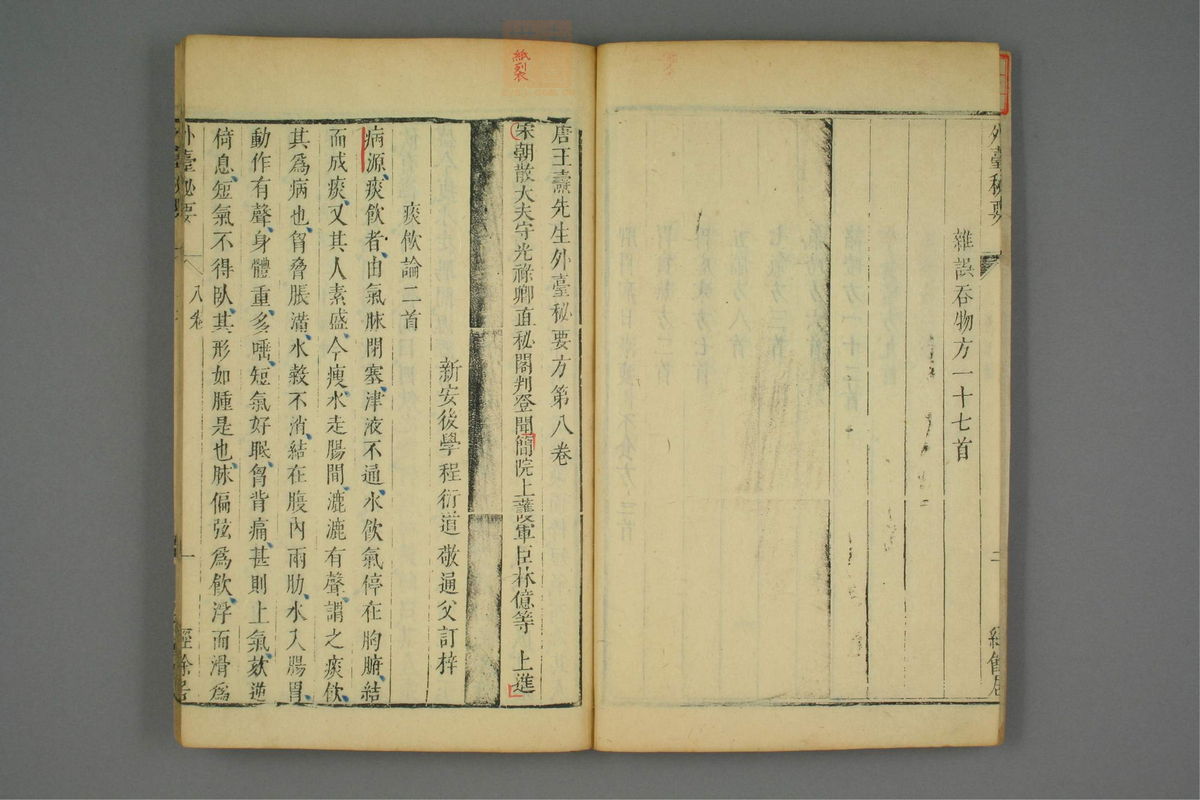 雜誤吞物方一十七首
外臺秘要
二
唐王燾先生外臺秘要方第八卷
宋朝散大夫守光祿卿直秘閣判登聞簡院上護軍臣林億等 上進
新安後學程衍道敬通父訂梓
痰飲論二首
病源痰飲者由氣脉閉塞津液不通水飲氣停在胸腑結
而成痰又其人素盛今瘦水走腸間漉漉有聲謂之痰飲
其爲病也胷脅脹滿水穀不消結在腹內兩肋水入腸胃
動作有聲身體重多唾短氣好眠胷背痛甚則上氣欬逆
倚息短氣不得臥其形如腫是也脉偏弦爲飲浮而滑爲
外臺秘要
八卷
一
經餘居
紙到衣